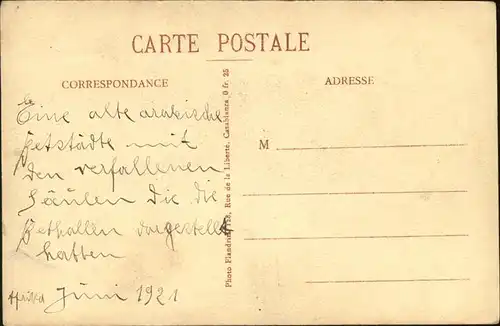 CARTE POSTALE
CORRESPONDANCE
ADRESSE
Eine alte arabische
Betstädte mit
den verfallenen
Säulen die die
Bethallen dargestellt
hatten
Juni 1921
M
Photo Flandrin, 153, Rue de la Liberté, Casablanca 0 fr. 25